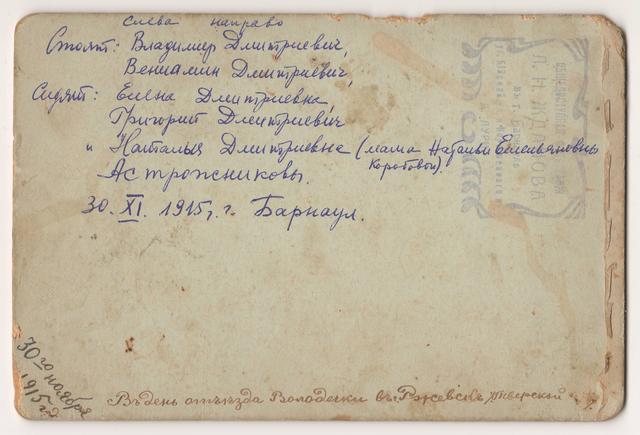 слева направо
Стоят: Владимир Дмитриевич,
Вениамин Дмитриевич,
Сидят: Елена Дмитриевна,
Григорий Дмитриевич
и Наталья Дмитриевна (мама Натальи Емельяновны
Коробовой).
Астрожниковы.
30. XI. 1915 г. Барнаул.
30го ноября
1915 г.
Въ день отъѣзда Володечки въ Ржевскъ Тверской
Л. Н. ЖДАНОВА